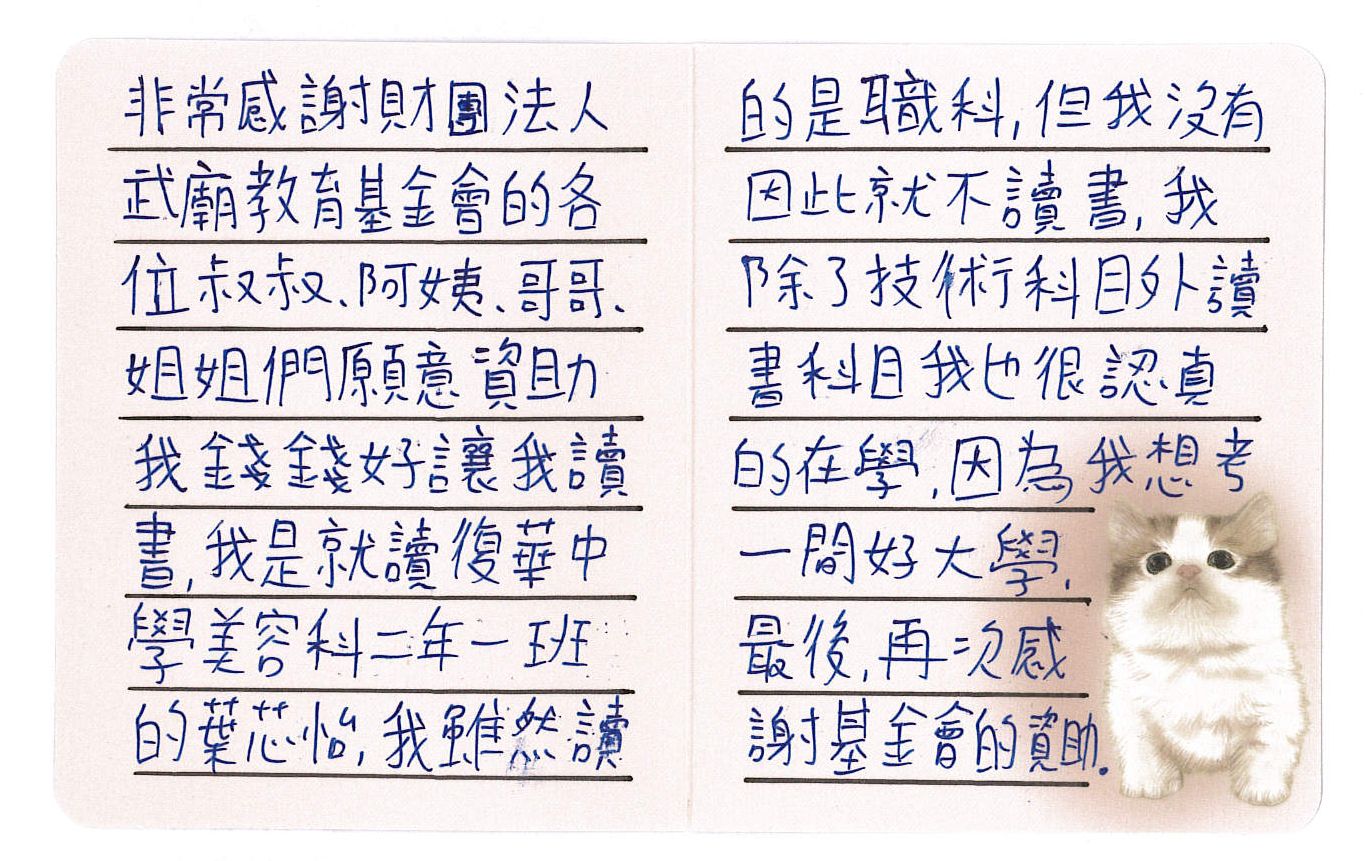 非常感謝財團法人
武廟教育基金會的各
位叔叔、阿姨、哥哥、
姐姐們願意資助
我錢錢好讓我讀
書,我是就讀復華中
學美容科二年一班
的葉芯怡,我雖然讀
的是職科,但我沒有
因此就不讀書,我
除了技術科目外讀
書科目我也很認真
的在學,因為我想考
一間好大學.
最後,再次感
謝基金會的資助.